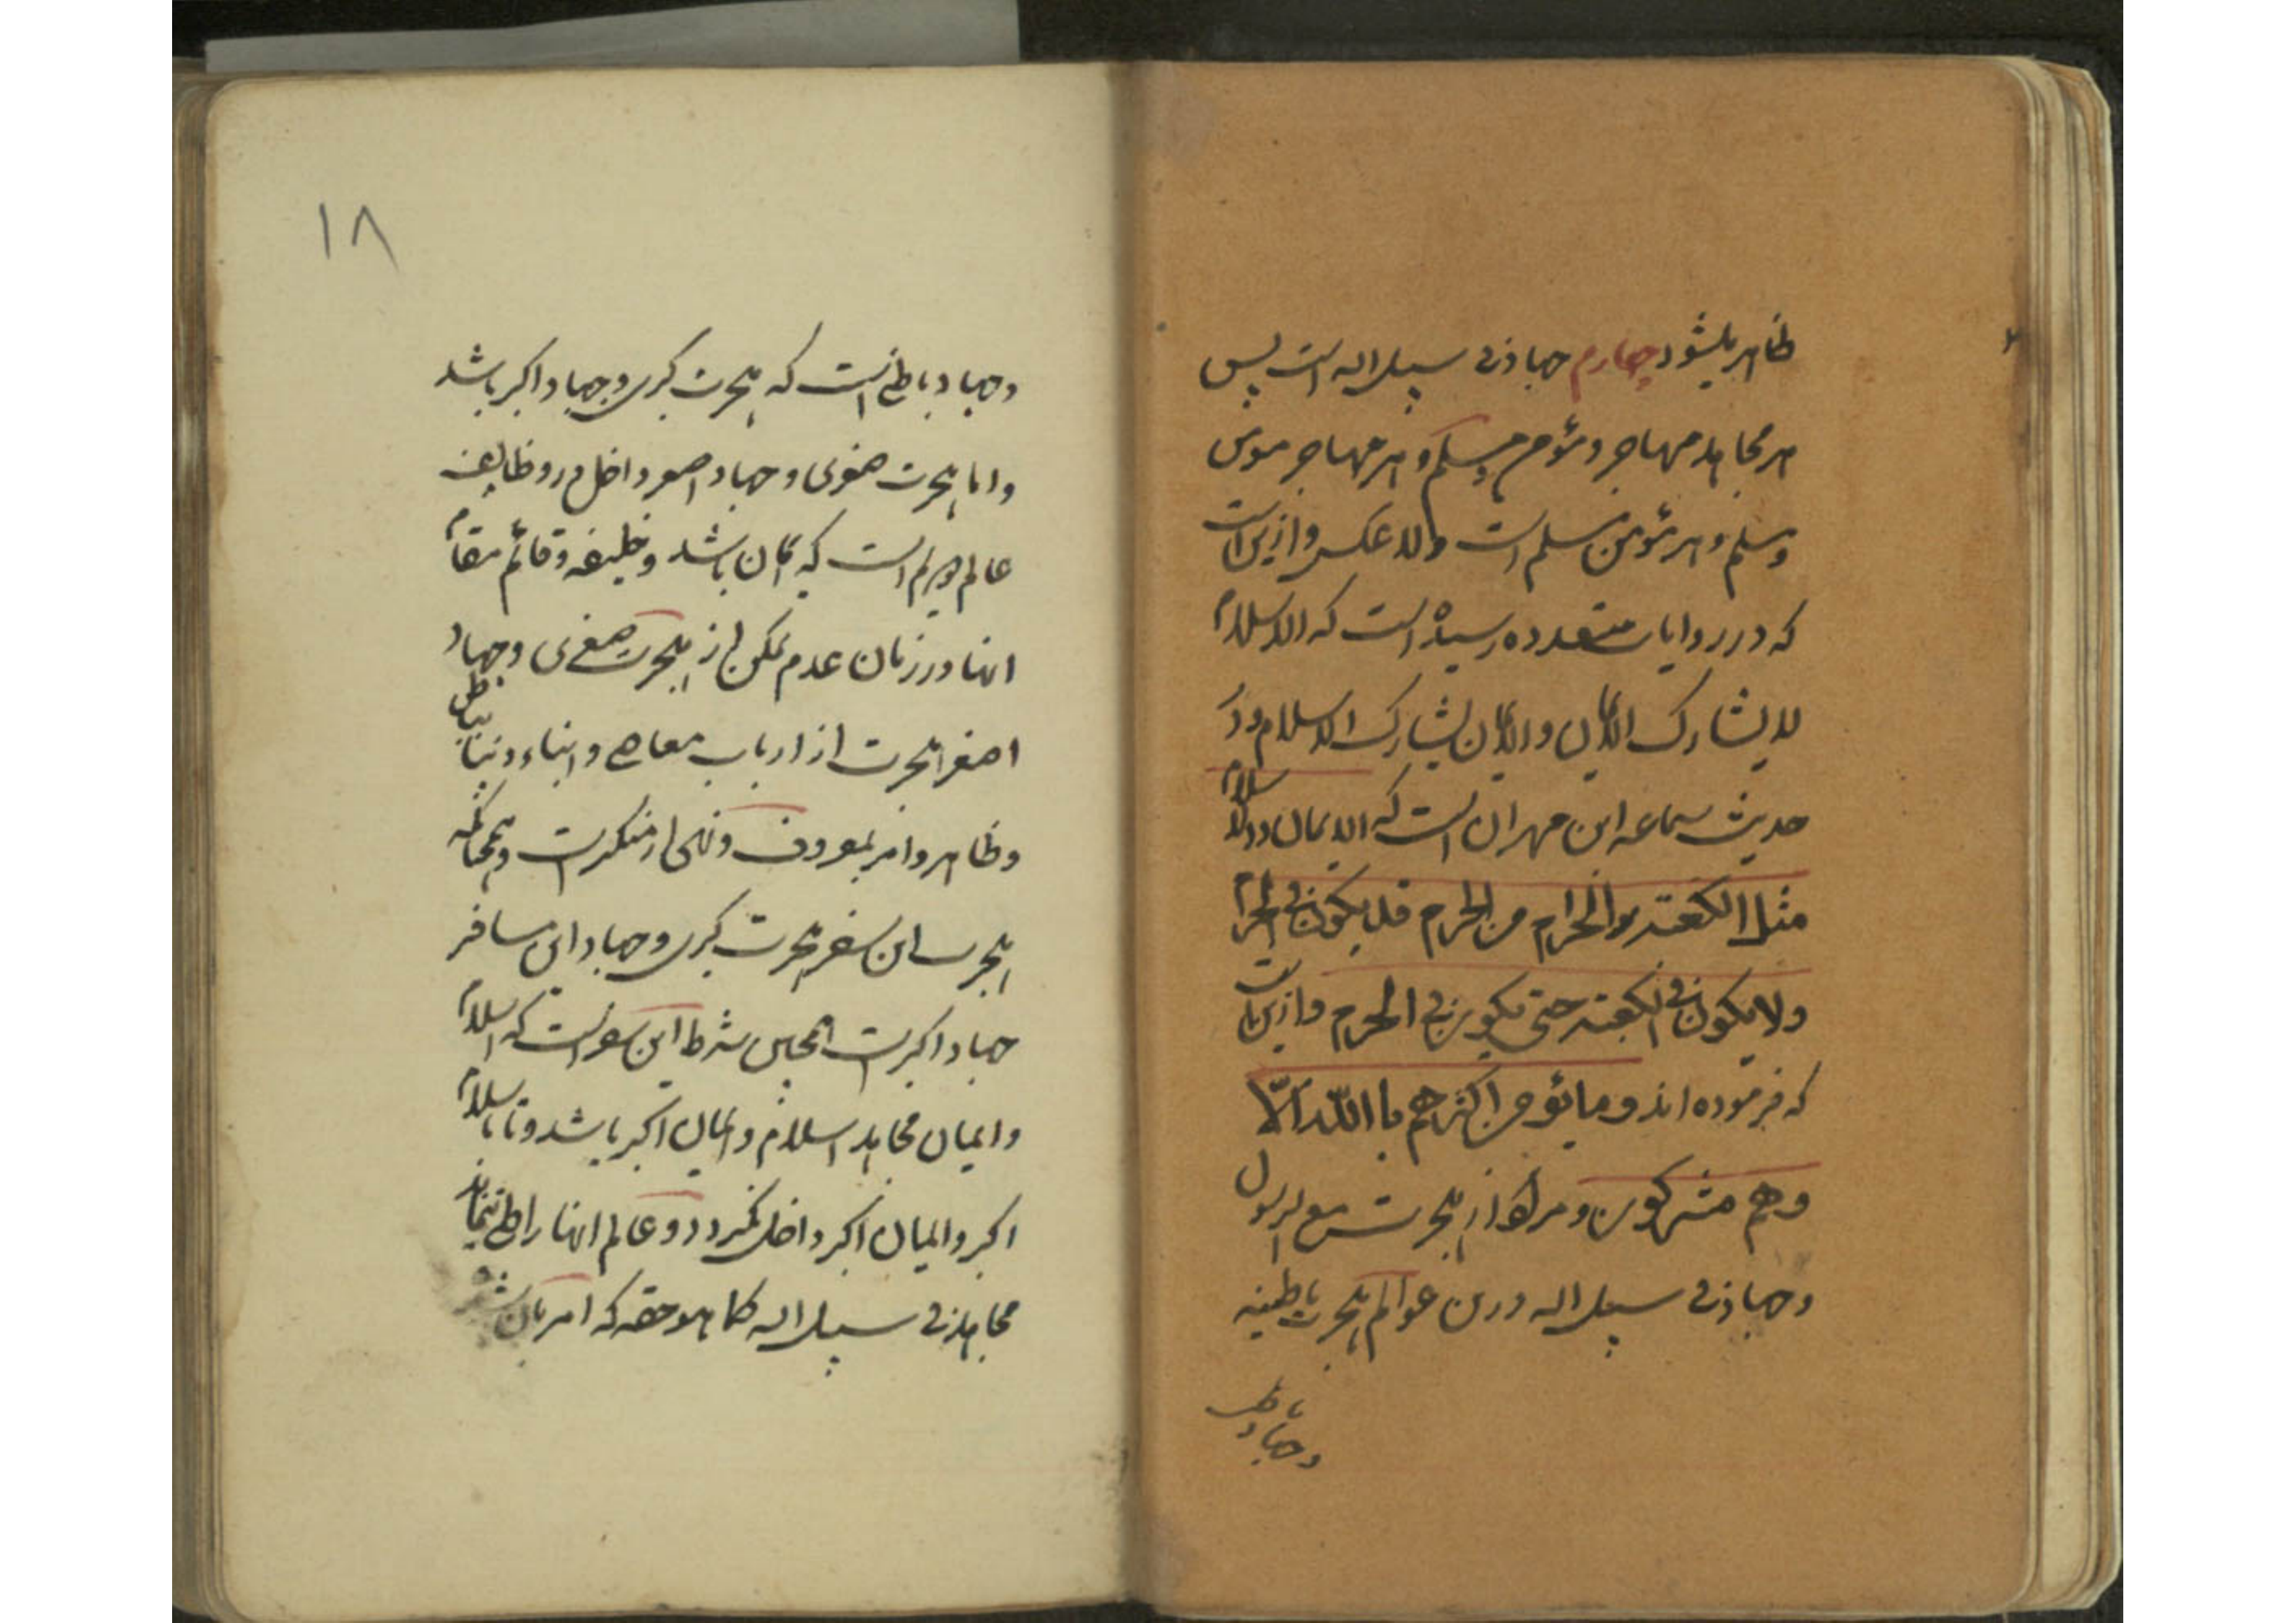 ظاهر میشود چهارم جهاد فی سبیل اله است پس
هر مجاهد مهاجر و مؤمن و مسلم و هر مهاجر مومن
و مسلم و هر مؤمن مسلم است ولا عکس و ازین است
که در روایات متعدده رسیده است که الاسلام
لا یشارک الایمان والایمان یشارک الاسلام و در
حدیث سماعه ابن مهران است که الایمان والاسلام
مثل الکعبة والحرام من الحرم قد یکون فی الحرم
ولا یکون فی الکعبة حتی یکون فی الحرم و ازین است
که فرموده اند و ما یؤمن اکثرهم باالله الّا
وهم مشرکون و مراد از هجرت مع الرسول
و جهاد فی سبیل اله درین عوالم هجرت باطنیه
و جهاد باط
۱۸
و جهاد باطنی است که هجرت کبری و جهاد اکبر باشد
و اما هجرت صغری و جهاد اصغر داخل در وظایف
عالم است که ایمان باشد و خلیفه و قائم مقام
انها در زمان عدم تمکن از هجرت صغری و جهاد
اصغر هجرت از ارباب معاصی و ابناء دنیا بباطن
و ظاهر و امر بمعروف و نهی از منکرست و همچنانکه
هجرت این سفر هجرت کبری و جهاد این مسافر
جهاد اکبرست همچنین شرط این سفر است که اسلام
و ایمان مجاهد اسلام و ایمان اکبر باشد و تا باسلام
اکبر و ایمان اکبر داخل نگردد و عالم انها را طی ننماید
مجاهد فی سبیل اله کما هو حقه که امر بان شده